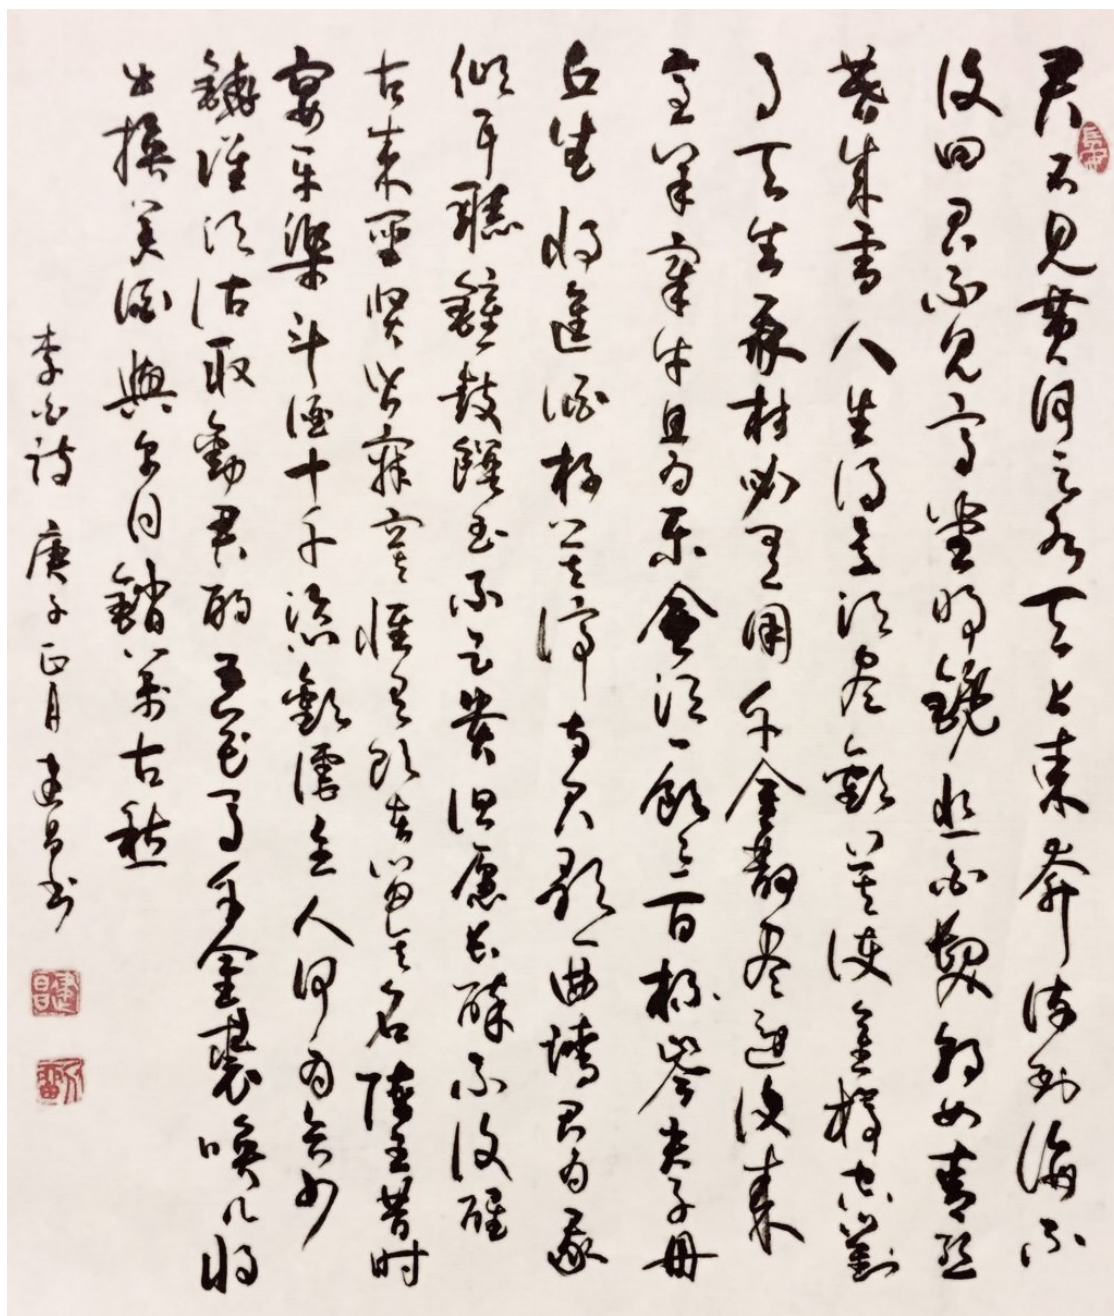 君不見黃河之水天上來奔流到海不
復回君不見高堂明鏡悲白髮朝如青絲
暮成雪人生得意須盡歡莫使金樽空對
月天生我材必有用千金散盡還復來
烹羊宰牛且為樂會須一飲三百杯岑夫子丹
丘生將進酒杯莫停與君歌一曲請君為我
傾耳聽鐘鼓饌玉不足貴但願長醉不復醒
古來聖賢皆寂寞惟有飲者留其名陳王昔時
宴平樂斗酒十千恣歡謔主人何為言少
錢徑須沽取君酌五花馬千金裘喚兒將
出換美酒與爾同銷萬古愁
李白詩 庚子正月建昌書
建昌